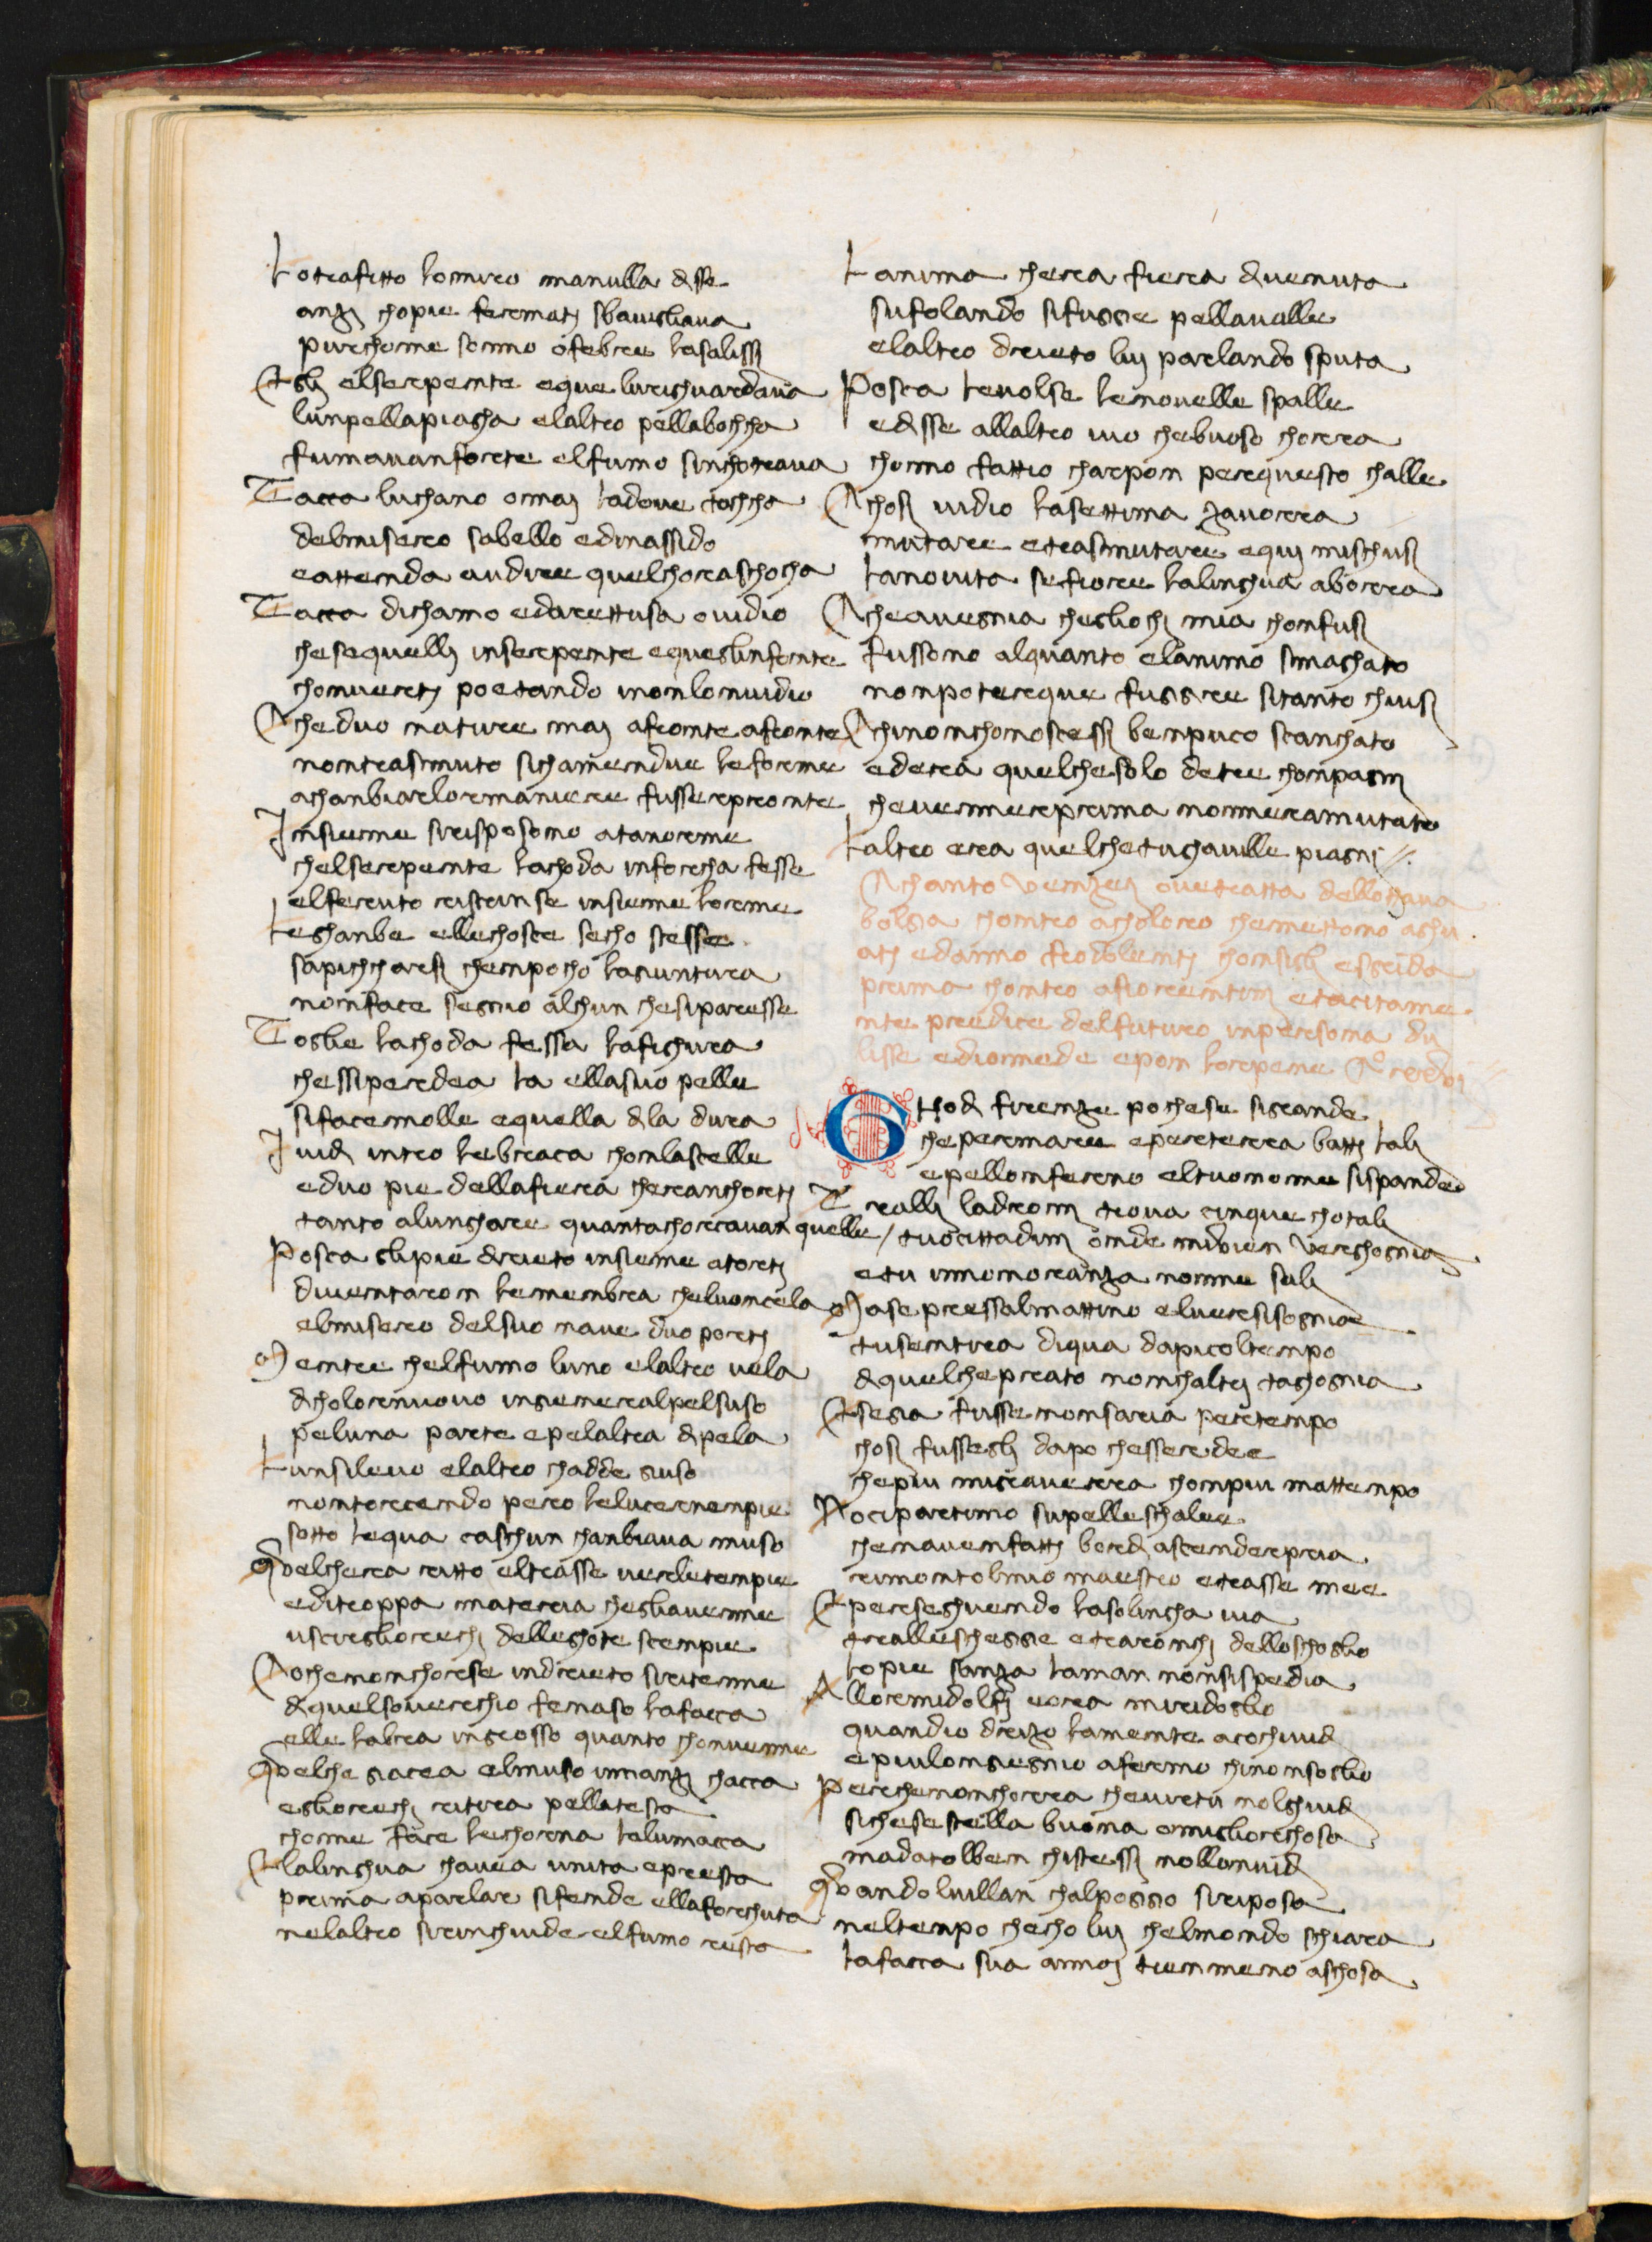 Lo trafitto lo miro ma nulla disse
anzi chopie fermati sbavigliava
pur chome sonno o febre lasalissi
Egli elserpente e que lui righuardava
lun pella piagha elaltro pella bochcha
fumavan forte el fumo sinchotrava
Taccia luchano omai ladove tochcha
delmisero sabello edinassido
e attenda audire quelchora schocha
Taccia dichamo edarettusa ovidio
chesequelli inserpente e quellinfonte
chonverti poetando i non lo nvidio
Che duo nature mai afronte afronte
nontrasmuto sichamendue le forme
achanbiar lor maniere fusser pronte
Insieme sirisposono atanorme
chelserpente lachoda inforcha fesse
elferuto ristrinse insieme lorme
Leghanbe ellechosce secho stesse
sapichcharsi chempocho lagiuntura
nonfacie segnio alchun chesiparesse
Toglie lachoda fessa lafighura
chessiperdea la ellasuo pelle
sifacie molle e quella di la dura
I vidi intro lebraccia chonlascelle
e duo pie dellafiera cherancorti
tanto alunghare quantachorcavan quelle
Poscia glipie drieto insieme atorti
diventaron lemenbra cheluoncela
elmisero delsuo navie duo porti
Mentre chelfumo luno elaltro vela
dicholor nuovo ingienera elpelsuso
peluna parte e pelaltra dipela
Lun silevo elaltro chadde giuso
nontorcendo pero lelucernenpie
sotto lequa ciaschun chanbiava muso
Quelchera ritto eltrasse verletempie
editroppa materia chegliavenne
uscirglioreuchi delleghote scempie
Cio chenonchorse indrieto siritenne
diquelsoverchio fenaso lafaccia
elle labra ingrosso quanto chonvenne
Quelche giacea elmuso innanzi chaccia
eglioreuchi ritira pellatesta
chome facie lechorna lalumacca
Elalinghua chavea unita epresta
prima aparlar sifende ellaforchuta
nelaltro sirinchiude elfumo resta
Lanima chera fiera divenuta
sufolando sifuggie pellavalle
elaltro drieto lui parlando sputa
Poscia levolse lenovelle spalle
edisse allaltro i vo chebuoso chorra
chomo fattio charpon perquesto challe
Chosi vidio lasettima zavorra
mutare etrasmutare e qui mischusi
lanovita sefiore lalinghua aborra
Che avegnia chegliochi mia chonfusi
fussono alquanto elanimo smaghato
nonpoterque fuggire sitanto chiusi
Chinonchonosciessi benpucco scianchato
ederea quelchesolo detre chompagni
chevennerprima nonneramutato
Laltro era quelchetughaville piagni
Chanto venzei ovetratta dellottava
bolgia chontro acholoro chemettono aghu
ati edanno frodolenti chonsigli essgrida
prima chontro afiorentini etacitame
nte predice delfuturo inpersona du
lisse ediomede e pon lorpene
Ghodi firenze poche se sigrande
chepermare eperterra batti lali
epelloinferno eltuonome sispande
Tralli ladroni trova cinque chotali
tuocittadini onde midvien verghognia
etu innonoranza nonne sali
Mase pressalmattino elversisognia
tusentirai diqua dapicoltempo
diquelcheprato nonchaltri taghognia
Esegia fusse nonsaria pertempo
chosi fussegli dapo chesserdee
chepiu migraverra chompiu mattempo
Nocipartimo supelleschalee
chenavenfatti bordi ascenderpria
rimontolmio maestro etrasse mee
Eperseghuendo lasolingha via
trallescheggie etraronchi delloschoglio
lopie sanza laman nonsispedia
Allormidolfi eora miridoglio
quandio drizo lamente acochivid
epiulongiegnio afermo chinonsoglio
Perchenonchorra chevirtu nolghuid
sichesestella buona omigliorchosa
madatolben chistessi nollonvidi
Quandolvillan chalpoggio siriposa
neltempo checholui chelmondo schiara
lafaccia sua annoi tienmeno aschosa